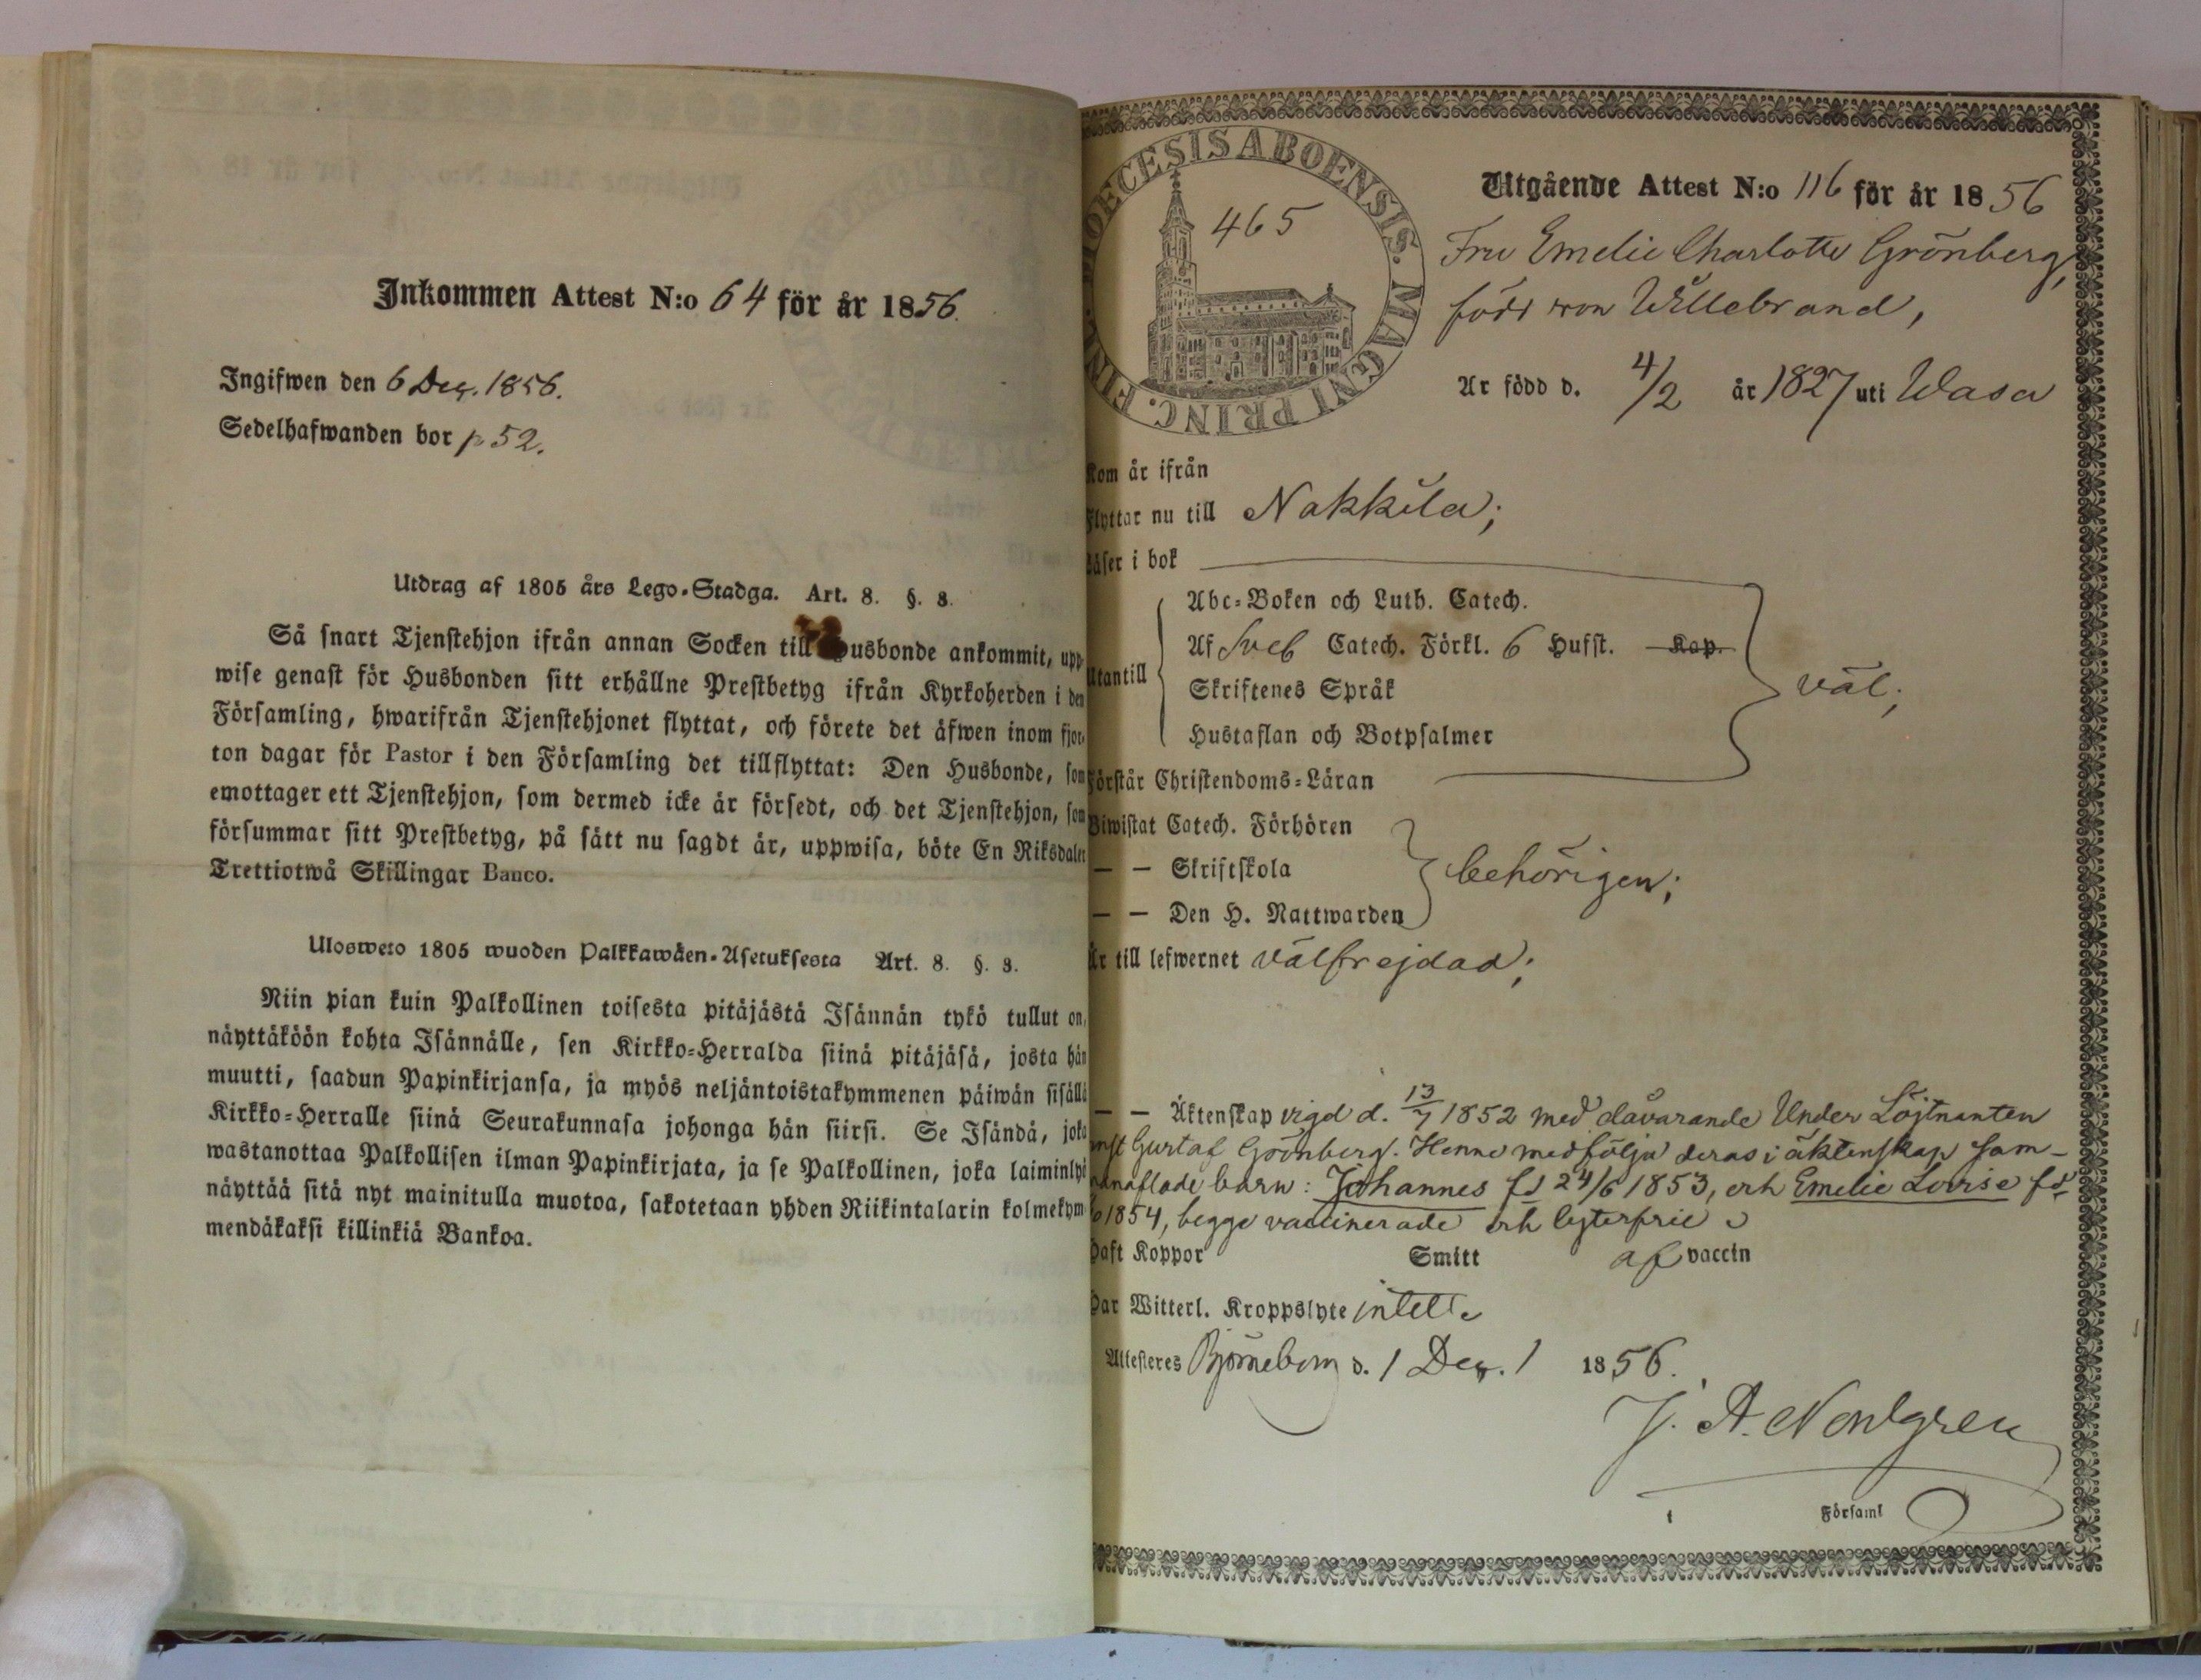 Inkommen Attest N:o 64 för år 1856.
Ingifwen den 6 Dec. 1856.
Sedelhafwanden bor p 52.
Utdrag af 1805 års Lego-Stadga. Art. 8. §. 3.
Så snart Tjenstehjon ifrån annan Socken till Husbonde ankommit, upp-
wise genast för Husbonden sitt erhållne Prestbetyg ifrån Kyrkoherden i den
Församling, hwarifrån Tjenstehjonet flyttat, och förete det äfwen inom fjor-
ton dagar för Pastor i den Församling det tillflyttat: Den Husbonde, som
emottager ett Tjenstehjon, som dermed icke är försedt, och det Tjenstehjon, som
försummar sitt Prestbetyg, på sätt nu sagdt är, uppwisa, böte En Riksdaler
Trettiotwå Skillingar Banco.
Ulosweto 1805 wuoden Palkkawäen-Asetuksesta Art. 8. §. 3.
Niin pian kuin Palkollinen toisesta pitäjästä Isännän tykö tullut on,
näyttäköön kohta Isännälle, sen Kirkko-Herralda siinä pitäjäsä, josta hän
muutti, saadun Papinkirjansa, ja myös neljäntoistakymmenen päiwän sisällä
Kirkko-Herralle siinä Seurakunnasa johonga hän siirsi. Se Isändä, joka
wastanottaa Palkollisen ilman Papinkirjata, ja se Palkollinen, joka laiminlyö
näyttää sitä nyt mainitulla muotoa, sakotetaan yhden Riikintalarin kolmekym
mendäkaksi killinkiä Bankoa.
DIOECESIS ABOENSIS. MAGNI PRINC. FINL.
465
Utgående Attest N:o 116 för år 1856
Fru Emelie Charlotte Grönberg,
född von Willebrand,
Är född d. 4/2 år 1827 uti Wasa
Kom år ifrån
Flyttar nu till Nakkila;
Läser i bok
Utantill
Abc-Boken och Luth. Catech.
Af Sveb Catech. Förkl. 6 Hufst. Kap.
Skriftenes Språk
Hustaflan och Botpsalmer
väl;
Förstår Christendoms-Läran
Biwistat Catech. Förhören
— — Skriftskola
— — Den H. Nattwarden
behörigen;
Är till lefwernet välfrejdad;
— — Äktenskap vigd d. 13/7 1852 med dåvarande Under Löjtnanten
Gustaf Grönberg. Henne medfölja deras i äktenskap sam-
manaflade barn: Johannes fd 24/6 1853, och Emelie Lovise fd
1854, begge vaccinerade och lyterfrie
Haft Koppor Smitt af vaccin
Har Witterl. Kroppslyte intet.
Attesteres Björneborg d. 1 Dec. 1856.
J. A. Nordgren
i Församl